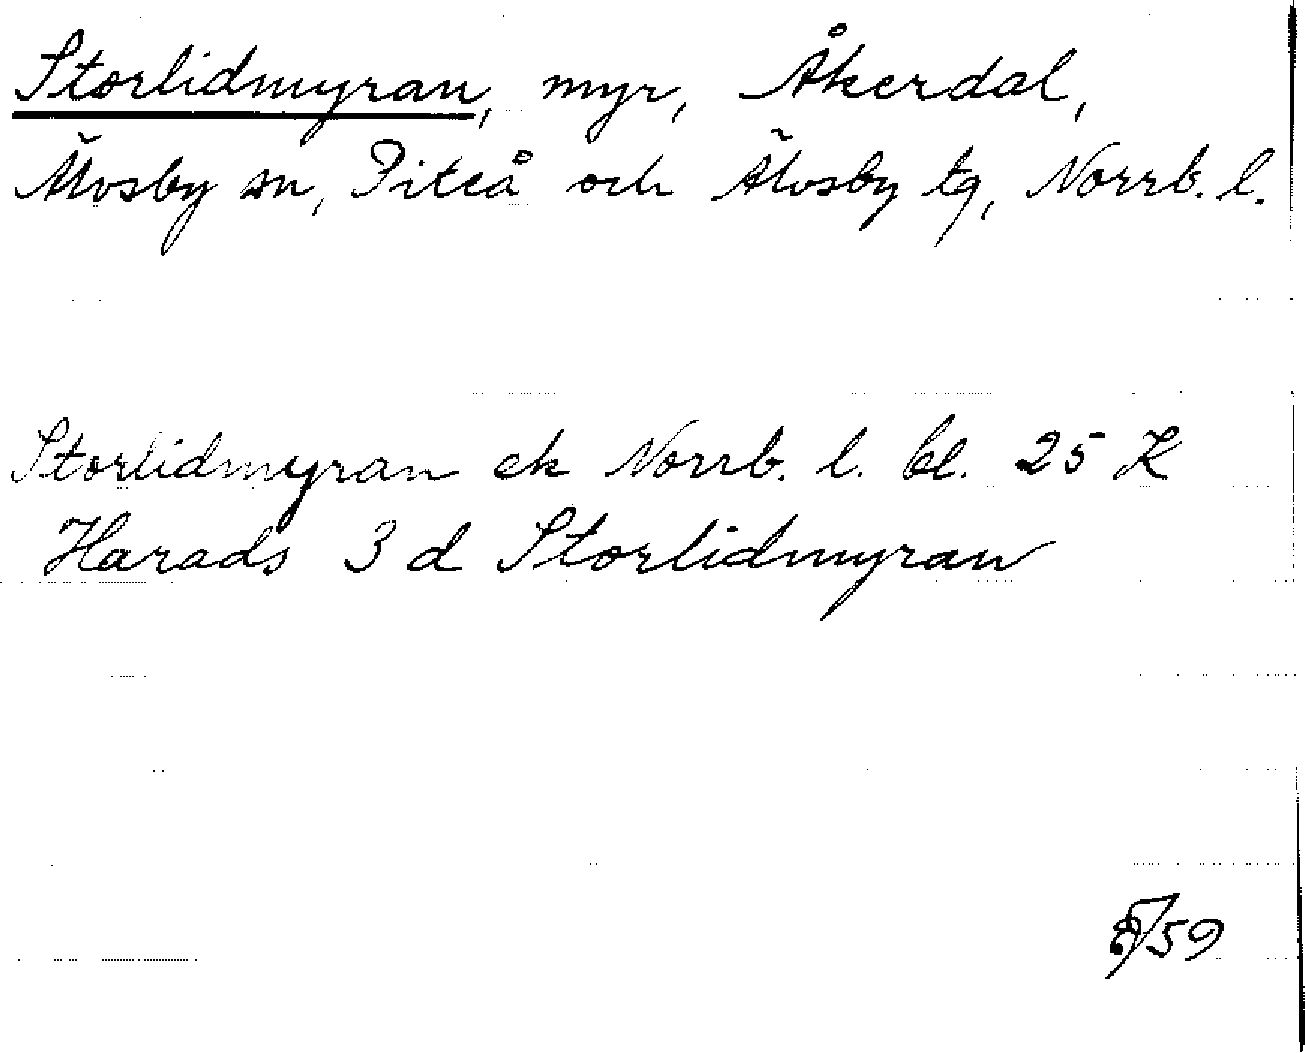 Storlidmyran, myr, Åkerdal,
Älvsby sn, Piteå och Älvsby tg, Norrb. l.
Storlidmyran ek Norrb. l. bl. 25 K
Harads 3 d Storlidmyran